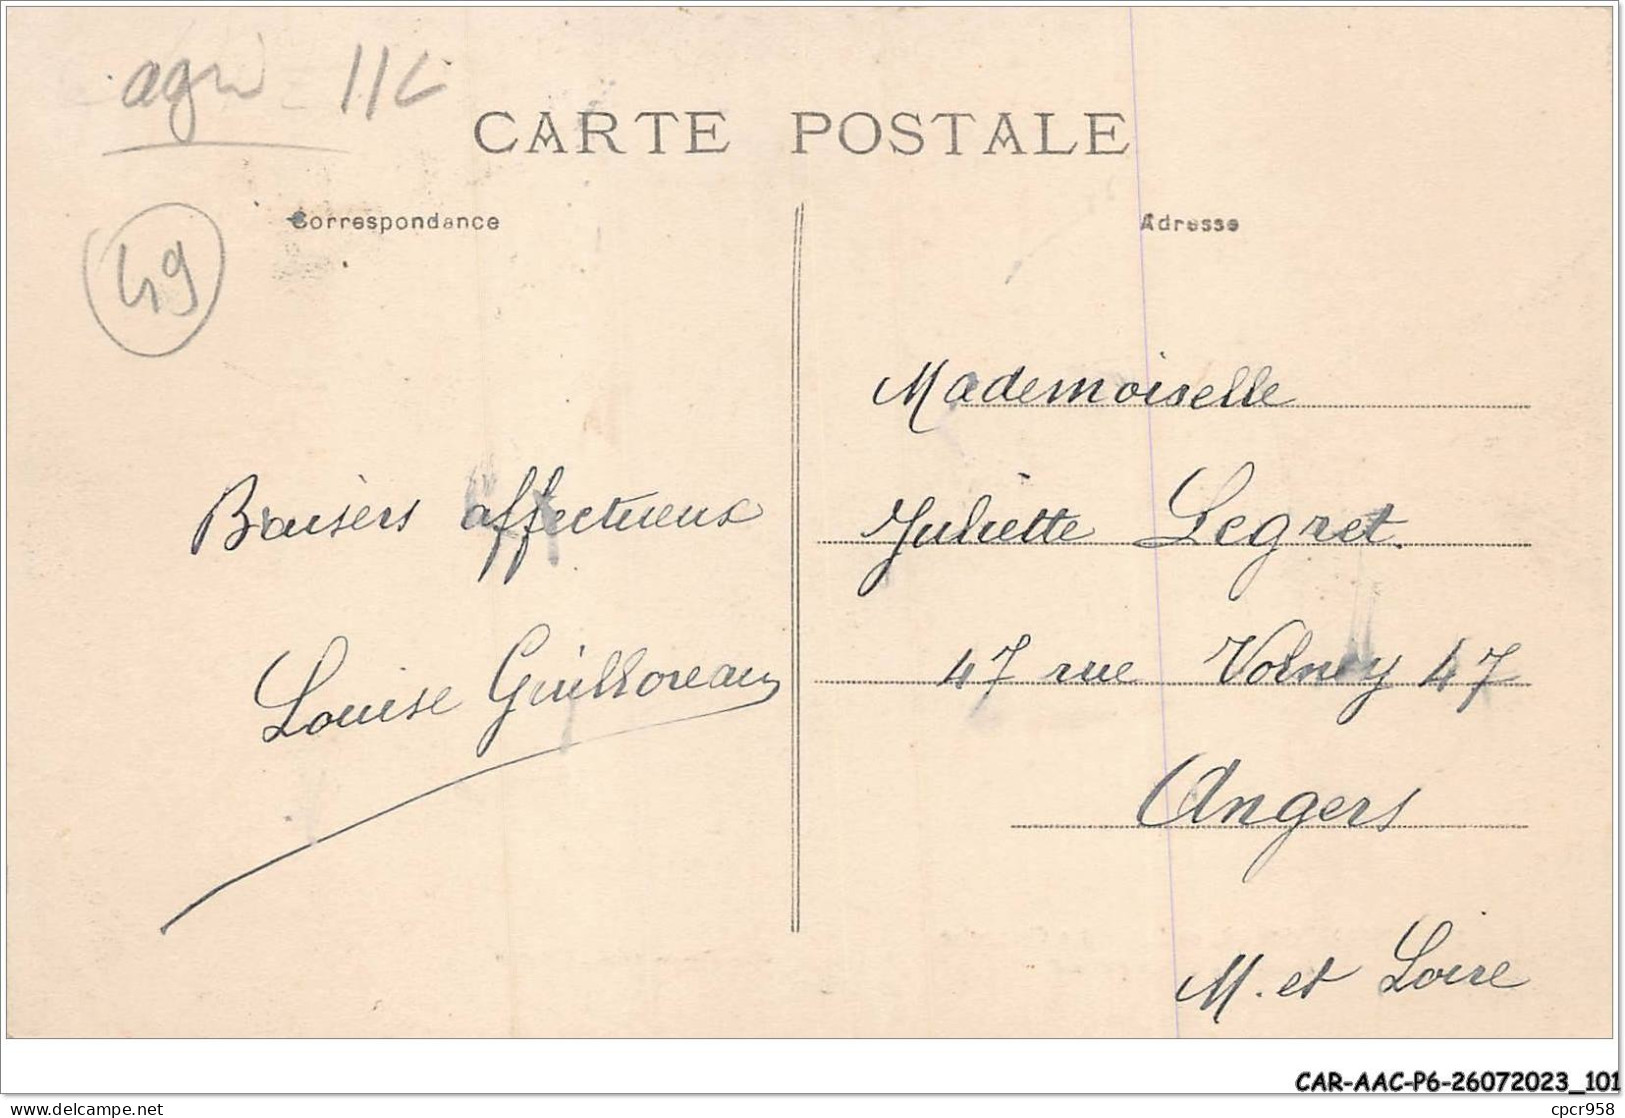 agri 11L
CARTE POSTALE
Correspondance
Adresse
49
Mademoiselle
Baisers affectueux
Juliette Legret.
47 rue Volney 47
Louise Guilloreau
Angers
M. et Loire
CAR-AAC-P6-26072023_101
www.delcampe.net
cpcr958